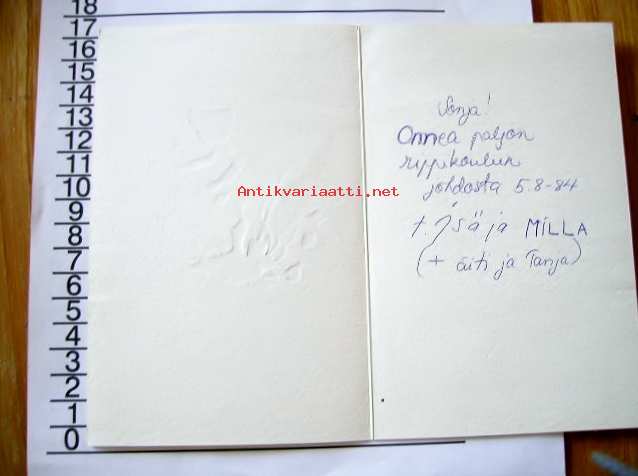 18
17
16
15
14
13
12
11
10
9
8
7
6
5
4
3
2
1
0
Antikvariaatti.net
Sonja!
Onnea paljon
rippikoulun
johdosta 5.8-84
t. Isä ja MILLA
(+ äiti ja Tanja)